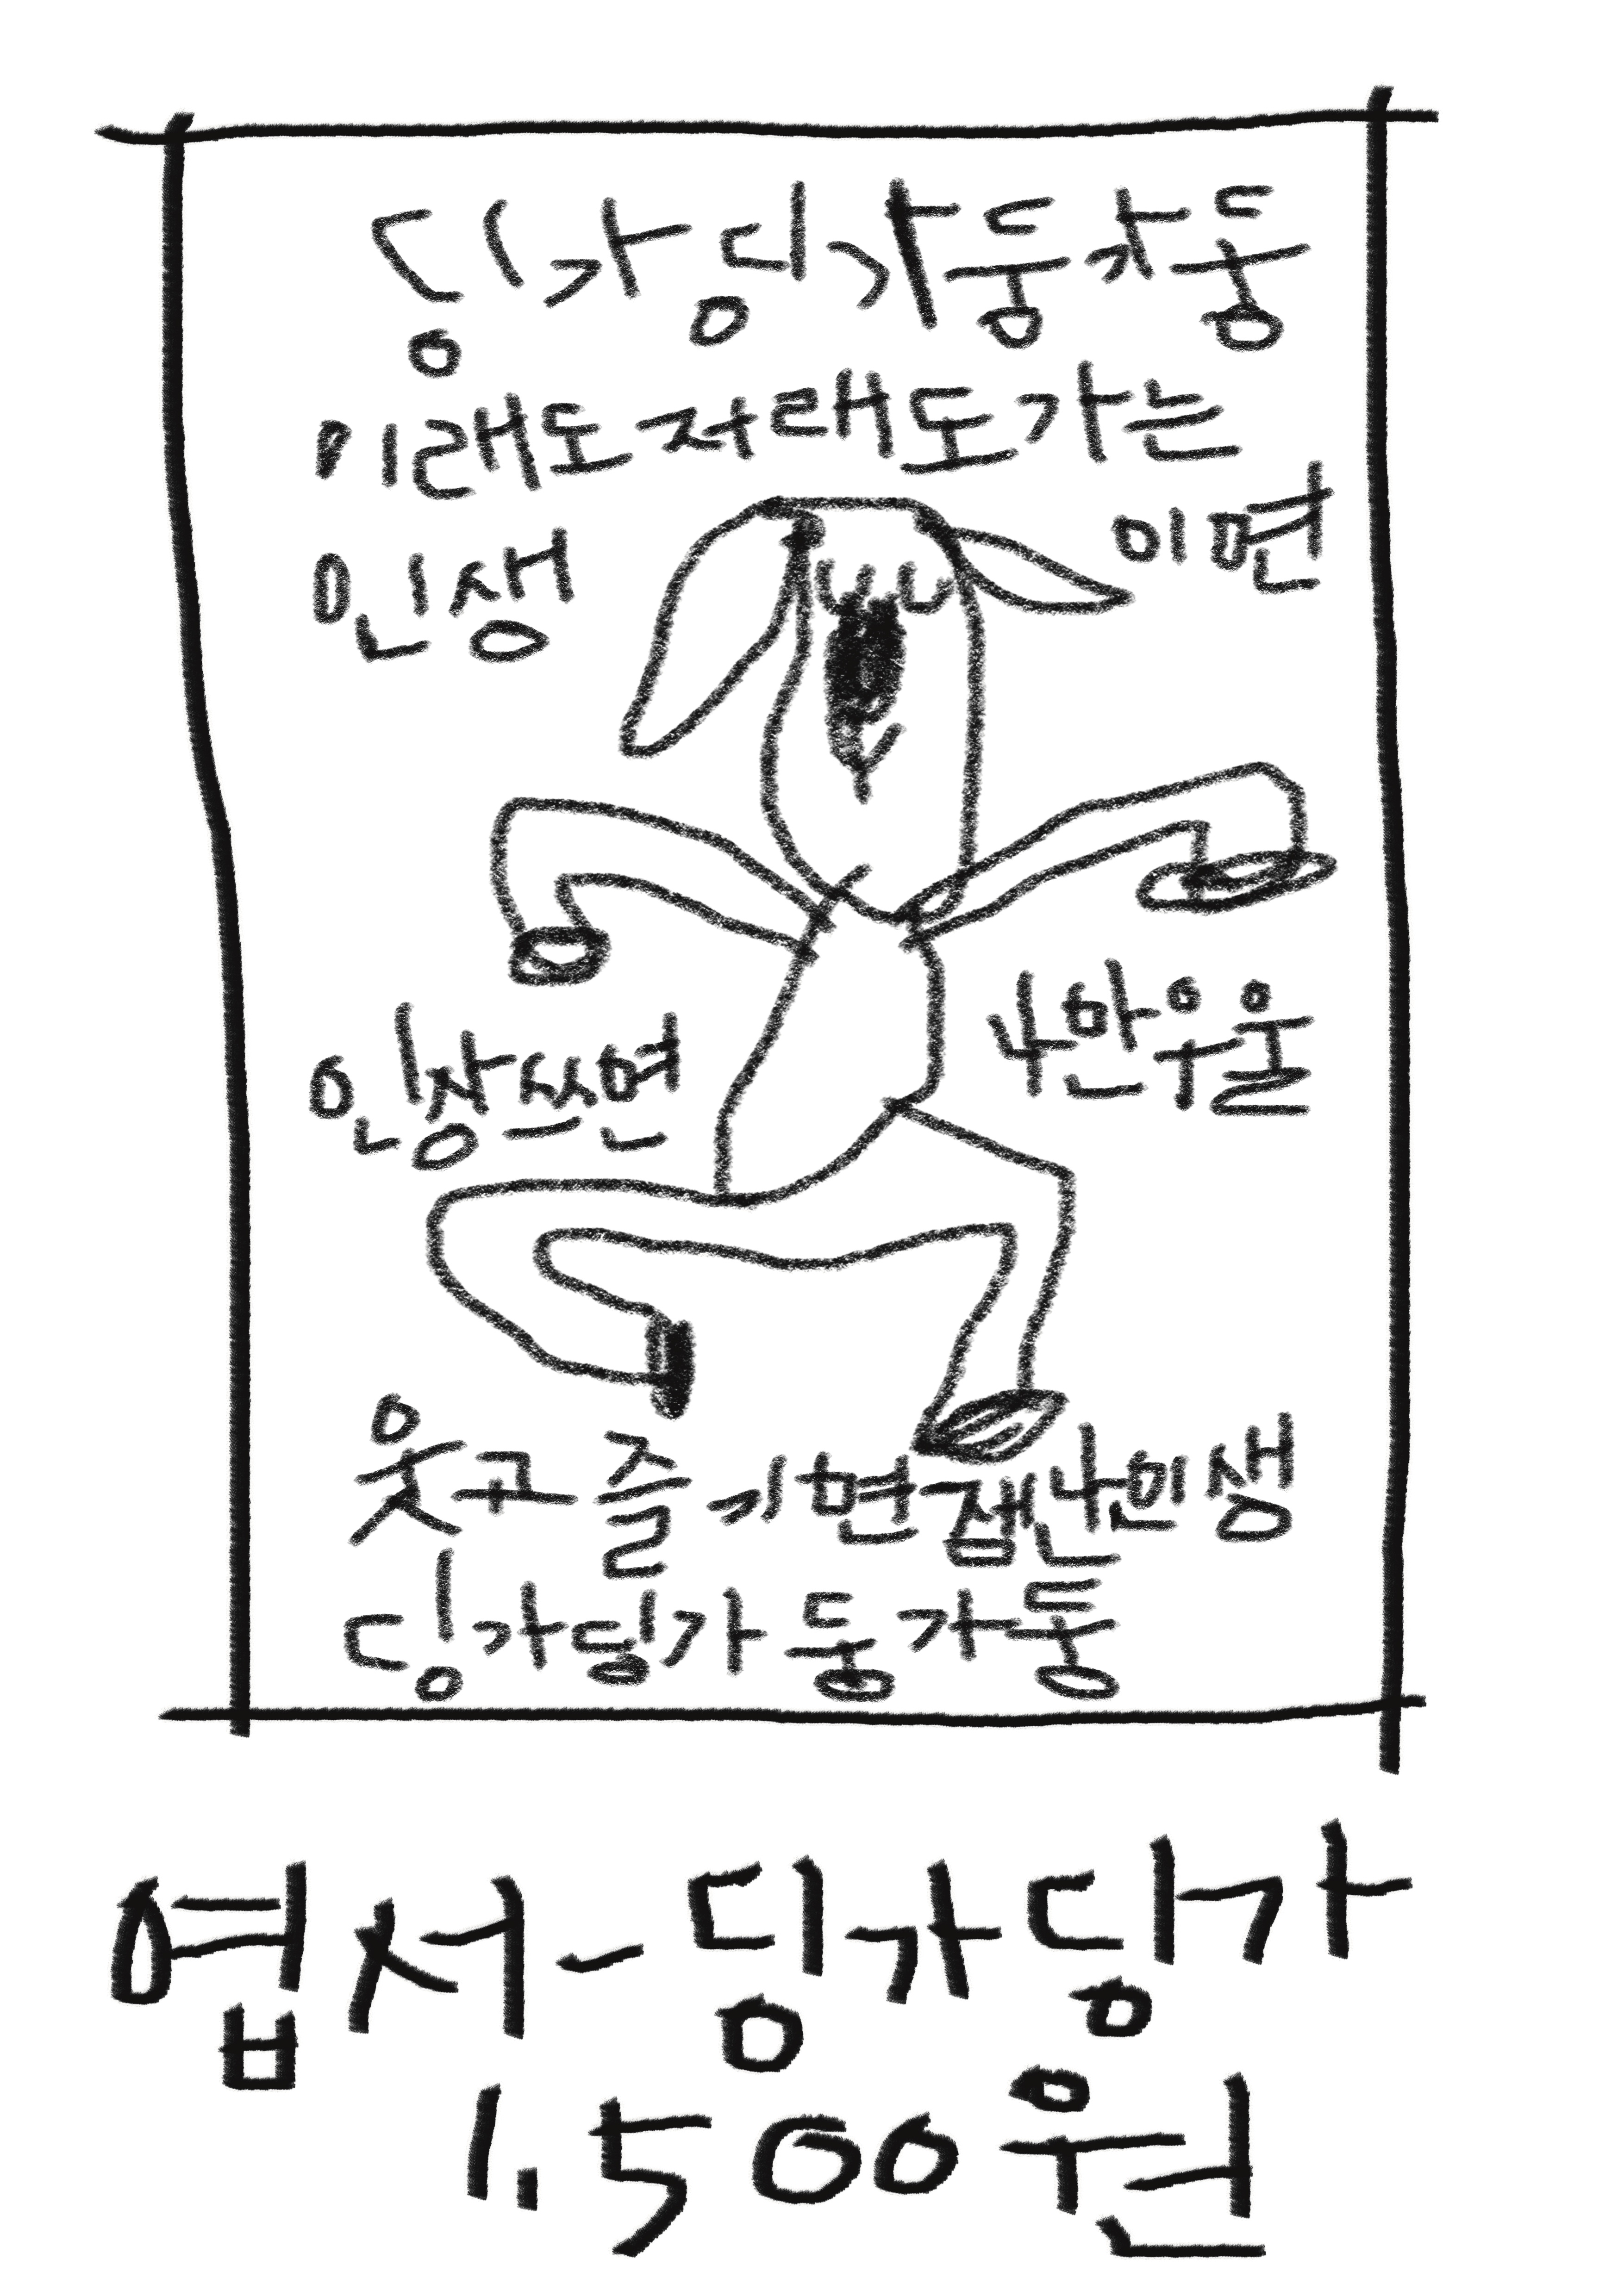 딩가딩가둥가둥
이래도저래도가는
인생
이면
인상쓰면
나만우울
웃고즐기면잼난인생
딩가딩가둥가둥
엽서-딩가딩가
1.500원